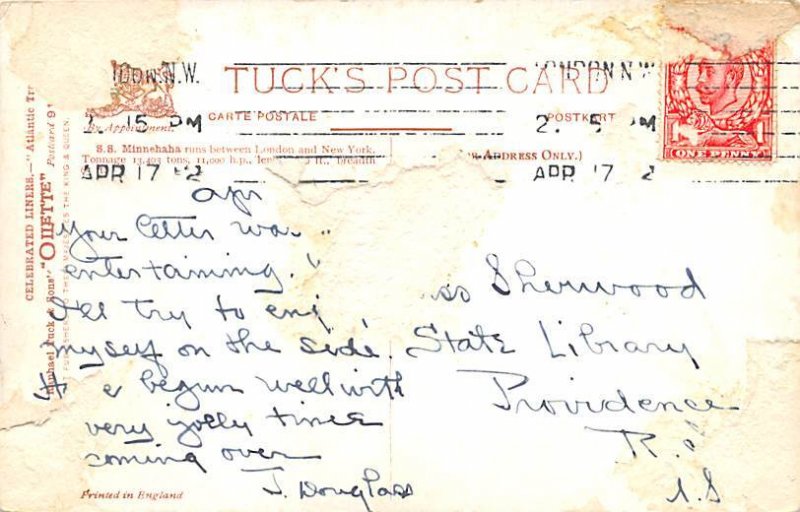 LONDON.N.W.
2. 15 PM
APR 17 12
TUCK'S POST CARD
CARTE POSTALE
POSTKART
By Appointment.
S.S. Minnehaha runs between London and New York.
Tonnage 13,403 tons, 11,000 h.p., breadth
ADDRESS ONLY.)
LONDON N.W
2. 5 PM
APR 17 2
ONE PENNY
CELEBRATED LINERS,—"Atlantic Tr
Raphael Tuck & Sons' "OILETTE" Postcard 9
FURNISHED TO THEIR MAJESTIES THE KING & QUEEN.
Apr
Your letter was "
entertaining."
I'll try to enj
myself on the side.
begun well with
very jolly times
coming over
J. Douglass
Sherwood
State Library
Providence
R.I
U.S
Printed in England